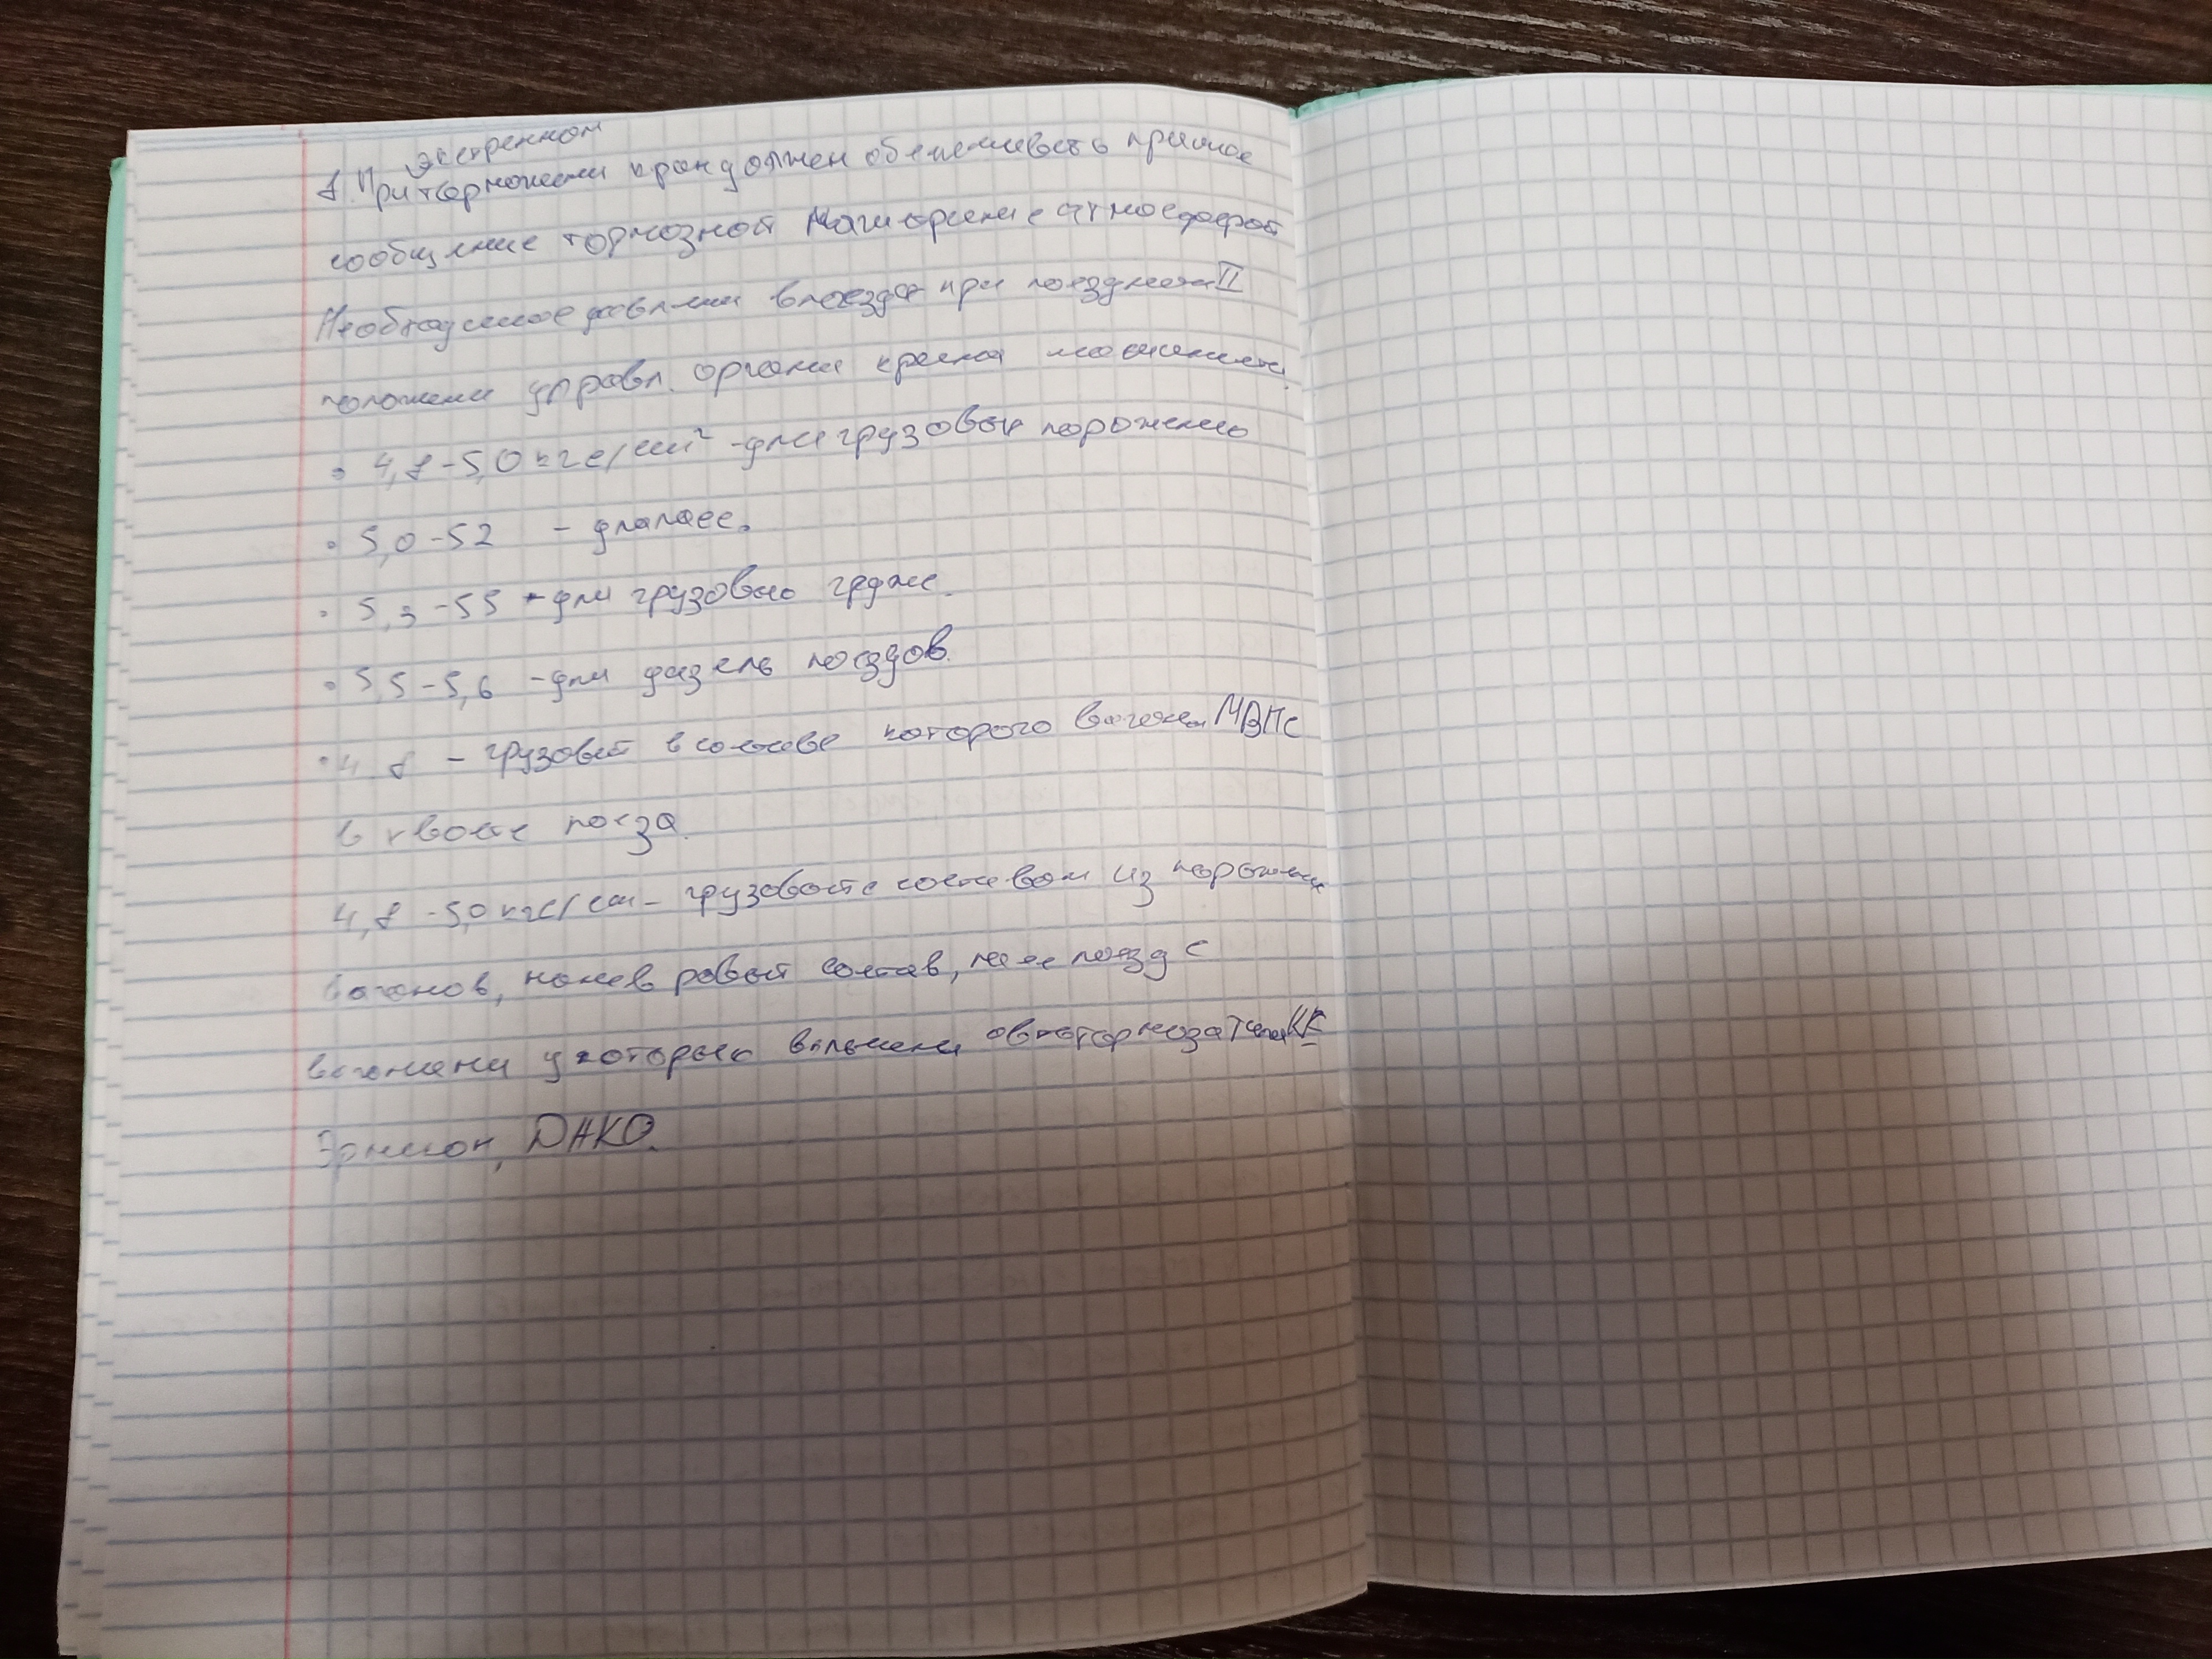 экстренном
8. При торможении кран должен обеспечивать прямое
сообщение тормозной магистрали с атмосферой
Необходимое давлении в поездах при поездном II
положении управл. органи крана машиниста
• 4,8-5,0 кгс/см² -для грузовых порожнего
• 5,0-52 - для пасс.
• 5,3-55 - для грузового груже.
• 5,5-5,6 -для дизель поездов.
• 4 8 - грузовой в составе которого вагоны МВПС
в хвосте поеза.
4,8 -5,0 кгс/см - грузовой с составом из порожних
вагонов, состав, поезд с
вагонами у которых включены автотормоза типа КК
ДАКО.